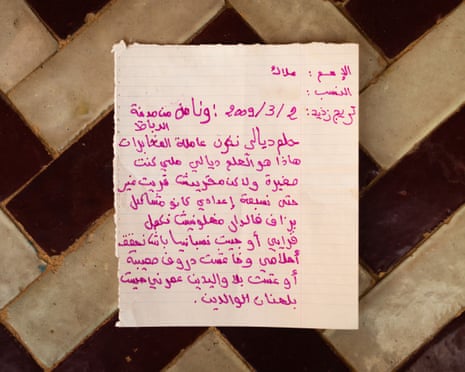 الإسم : ملاك
النسب :
تريخ زديد : 2009/3/2 أونا من مدينة
الرباط
حلم ديالي نكون عاملة المخابرات
هاذا هو الحلم ديالي مللي كنت
صغيرة ولاكن مقريتش قريت غير
حتى نسبعة إعدادي كانو مشاكيل
بزاف فالدار مخلونيش نكمل
قرايتي أو جيت نسبانيا باش نحقق
أحلامي وخا عشت دروف صعيبة
أو عشت بلا واليدين عمرني حسيت
بلحنان الوالدين .